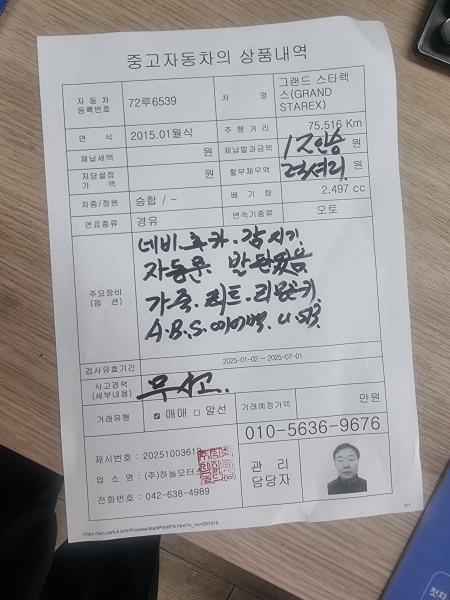 중고자동차의 상품내역
자 동 차 등록번호 72루6539 차 명 그랜드 스타렉스(GRAND STAREX)
연 식 2015.01월식 주 행 거 리 75,516 Km
체납세액 원 체납벌과금액 12인승 원
저당설정가 액 원 할부채무액 럭셔리 원
차종/정원 승합 / - 배 기 량 2,497 cc
연료종류 경유 변속기종류 오토
주요장비 (옵 션)
네비. 후카. 감지기.
자동문. 발판있음
가죽. 히트. 리모콘키.
A.B.S. 에어백. USB.
검사유효기간 2025-01-02 ~ 2025-07-01
사고경력 (세부내용) 무사고.
거래유형 매매 알선 거래예정가액 만원
010-5636-9676
제시번호 : 2025100361
업 소 명 : (주)하늘모터스
전화번호 : 042-638-4989
관 리 담당자
1/1